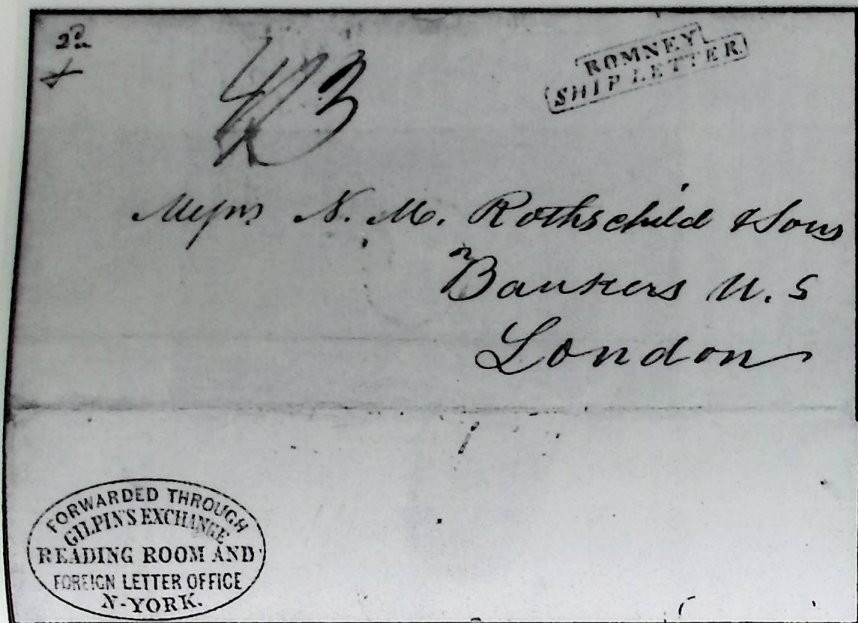 2d
ROMNEY
SHIP LETTER
Messrs N. M. Rothschild & Sons
Bankers
London
FORWARDED THROUGH
GILPIN'S EXCHANGE
READING ROOM AND
FOREIGN LETTER OFFICE
N-YORK.